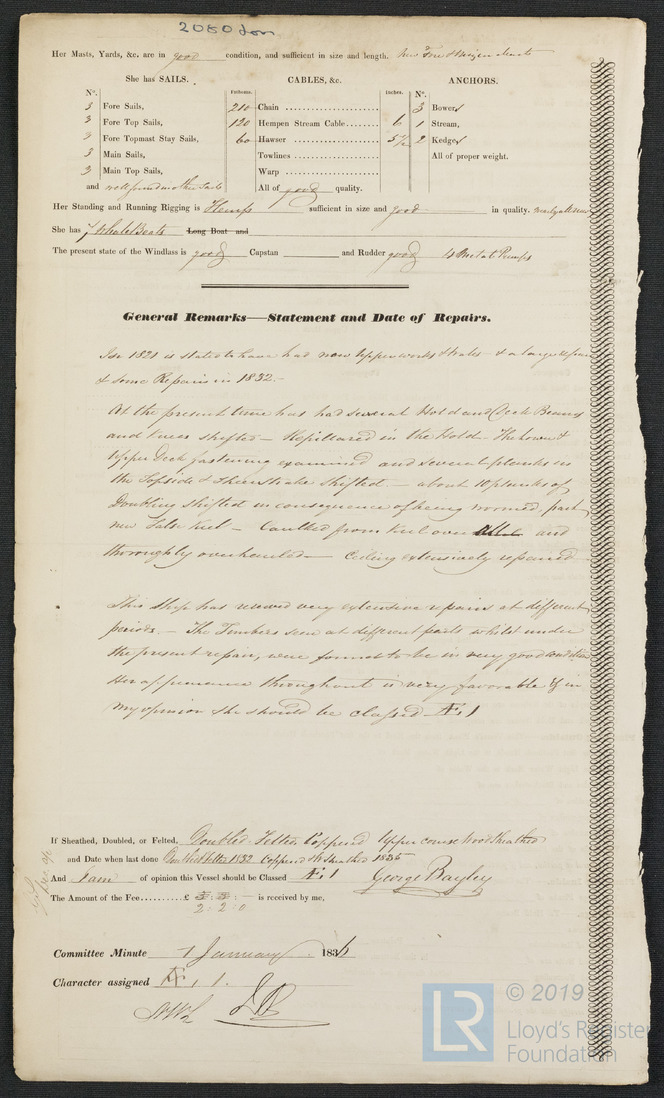 2080 Lon
Her Masts, Yards, &c. are in good condition, and sufficient in size and length. New Fore & Mizen Masts
She has SAILS. CABLES, &c. ANCHORS.
N°. Fathoms. Inches. N°.
3 Fore Sails, 210 Chain 3 Bowers
3 Fore Top Sails, 120 Hempen Stream Cable 6 1 Stream,
3 Fore Topmast Stay Sails, 60 Hawser 5½ 2 Kedges
3 Main Sails, Towlines All of proper weight.
3 Main Top Sails, Warp
and well found in other Sails All of good quality.
Her Standing and Running Rigging is Hemp sufficient in size and good in quality. nearly all new
She has 7 Whale Boats Long Boat and
The present state of the Windlass is good Capstan and Rudder good 4 Metal Pumps
General Remarks—Statement and Date of Repairs.
In 1821 is stated to have had new upperworks & Wales - & a large repair
& some Repairs in 1832.-
At the present time has had several Hold and Deck Beams
and Knees shifted - Repillared in the Hold - The Lower &
Upper Deck fastening examined and several planks in
the Topside & Sheerstrake shifted - about 10 planks of
Doubling shifted in consequence of being wormed, part
new False Keel - Caulked from Keel over and
thoroughly overhauled - Ceiling extensively repaired
This Ship has received very extensive repairs at different
periods. - The Timbers seen at different parts whilst under
the present repair, were found to be in very good condition
Her appearance throughout is very favorable & in
my opinion she should be classed Æ 1
If Sheathed, Doubled, or Felted, Doubled Felted Coppered Upper course Wood Sheathed
and Date when last done Doubled Felted 1832 Coppered & Sheathed 1835
And I am of opinion this Vessel should be Classed Æ 1 George Bayley
The Amount of the Fee £ 3: 3: - is received by me,
2: 2: 0
Committee Minute 1 January 1836
Character assigned Æ 1.
© 2019
LR
Lloyd's Register
Foundation